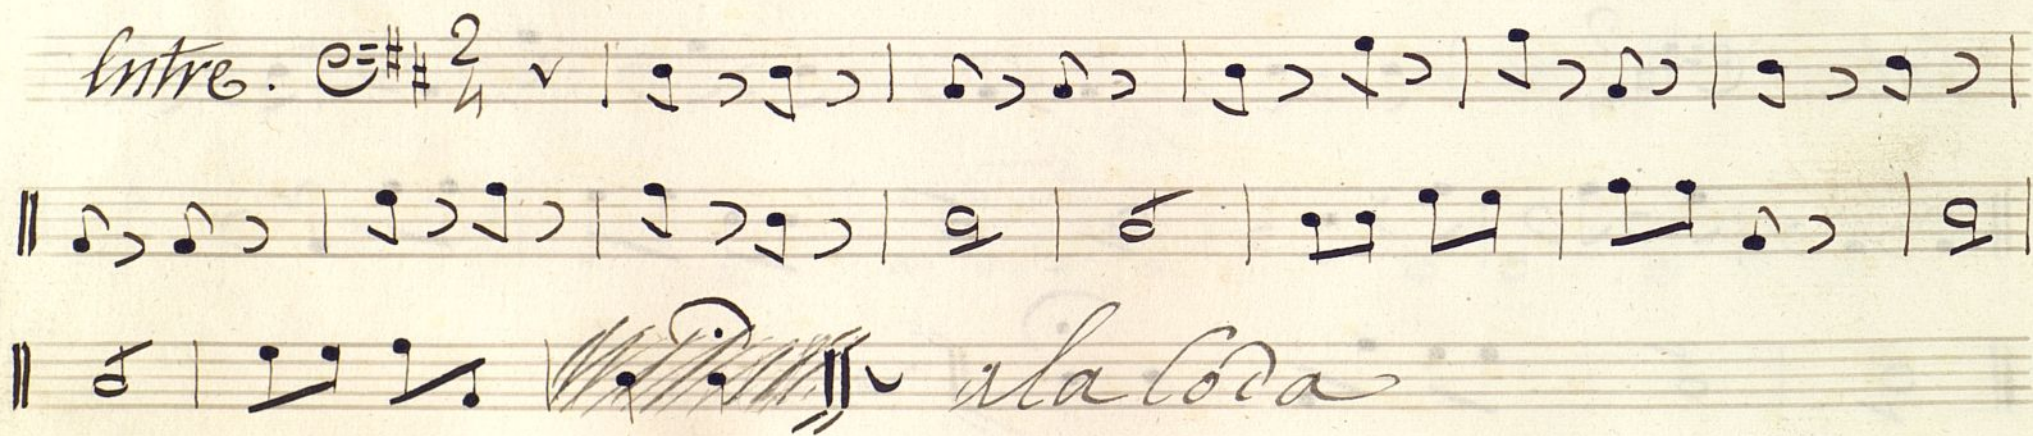 Entre. 2/4
a la Coda